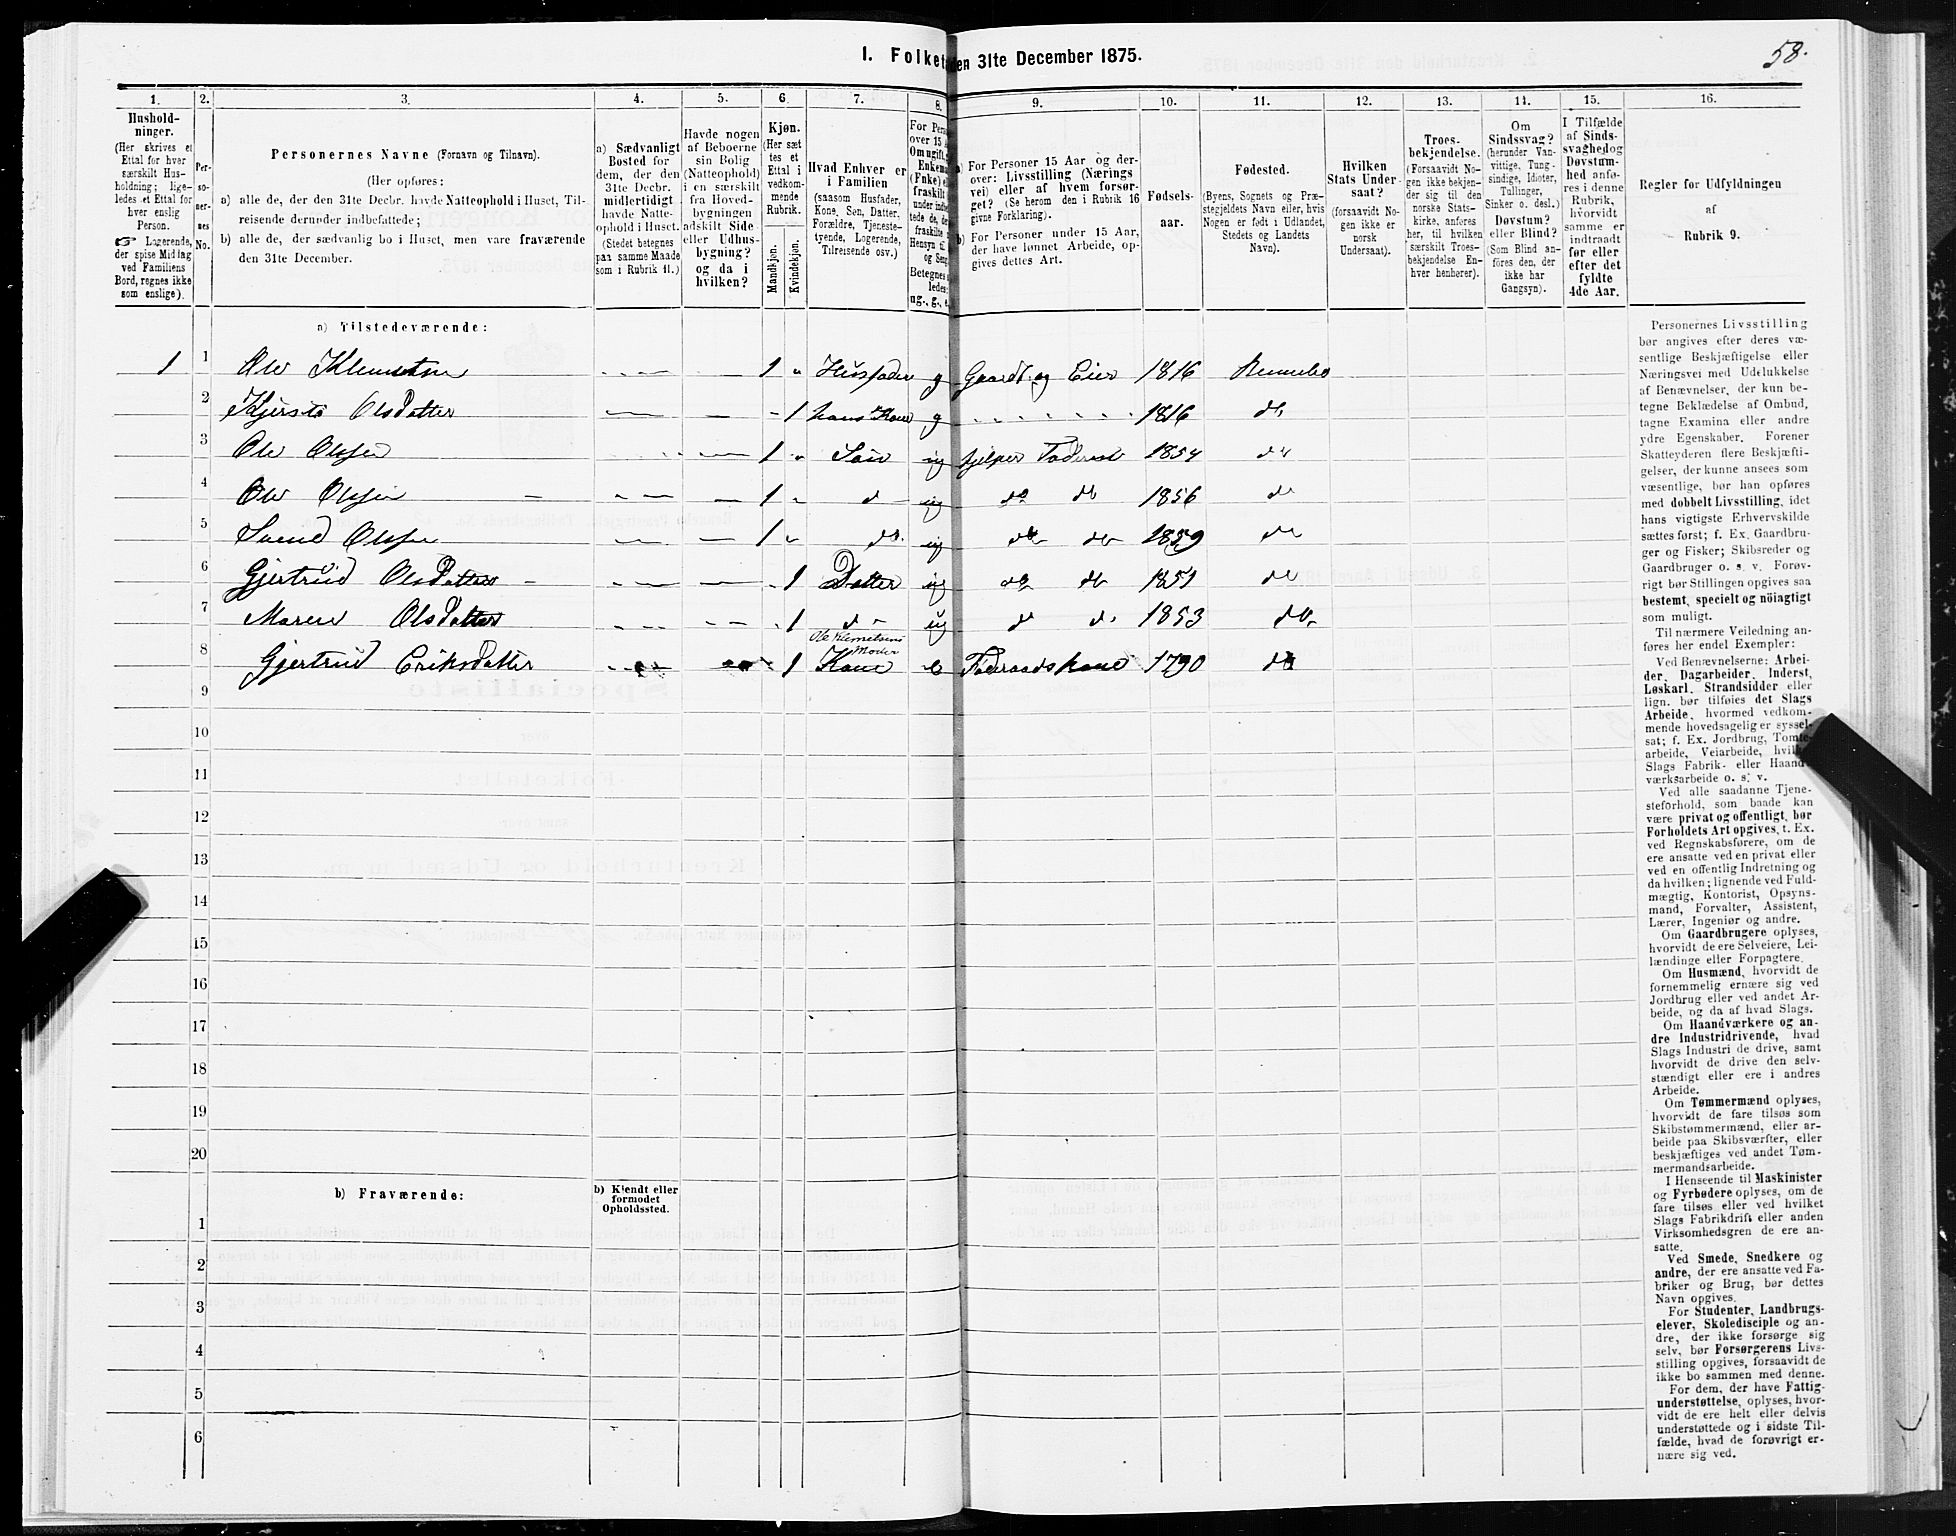 I. Folket
en 31te December 1875.
58.
1.
2.
3.
4.
5.
6.
7.
8.
9.
10.
11.
12.
13.
14.
15.
16.
Hushold-
ninger.
(Her skrives et
Ettal for hver
særskilt Hus-
holdning; lige-
ledes et Ettal for
hver enslig
Person.
☞ Logerende,
der spise Middag
ved Familiens
Bord, regnes ikke
som enslige).
Per-
so-
ner-
nes
No.
Personernes Navne (Fornavn og Tilnavn).
(Her opføres:
a) alle de, der den 31te Decbr. havde Natteophold i Huset, Til-
reisende derunder indbefattede;
b) alle de, der sædvanlig bo i Huset, men vare fraværende
den 31te December.
a) Sædvanligt
Bosted for
dem, der den
31te Decbr.
midlertidigt
havde Natte-
ophold i Huset.
(Stedet betegnes
paa samme Maade
som i Rubrik 11.)
Havde nogen
af Beboerne
sin Bolig
(Natteophold)
i en særskilt
fra Hoved-
bygningen
adskilt Side
eller Udhus-
bygning?
og da i
hvilken?
Kjøn.
(Her sæt
tes et
Ettal i
vedkom-
mende
Rubrik.
Mandkjøn.
Kvindekjøn.
Hvad Enhver er
i Familien
(saasom Husfader,
Kone, Søn, Datter,
Forældre, Tjeneste-
tyende, Logerende,
Tilreisende osv.)
For Pers
over 15 A
Om ugift,
Enkema
(Enke) e
fraskilt
under indbe
tede de, de
fraskilte
Hensyn til
og Seng
Betegnes s
ledes:
ug., g., e.
a) For Personer 15 Aar og der-
over: Livsstilling (Nærings
vei) eller af hvem forsør-
get? (Se herom den i Rubrik 16
givne Forklaring).
b) For Personer under 15 Aar,
der have lønnet Arbeide, op-
gives dettes Art.
Fødsels-
aar.
Fødested.
(Byens, Sognets og Præ-
stegjeldets Navn eller, hvis
Nogen er født i Udlandet,
Stedets og Landets
Navn).
Hvilken
Stats Under-
saat?
(forsaavidt No-
gen ikke er
norsk
Undersaat).
Troes-
bekjendelse.
(Forsaavidt No-
gen ikke bekjen-
der sig til den
norske Stats-
kirke, anføres
her, til hvilken
særskilt Troes-
bekjendelse En-
hver henhører).
Om
Sindssvag?
(herunder Van-
vittige, Tung-
sindige, Idioter,
Tullinger,
Sinker o. desl.)
Døvstum?
eller Blind?
(Som Blind an-
føres den, der
ikke har
Gangsyn).
I Tilfælde
af Sinds-
svaghed og
Døvstum-
hed anfø-
res i denne
Rubrik,
hvorvidt
samme er
indtraadt
før eller
efter det
fyldte
4de Aar.
Regler for Udfyldningen
af
Rubrik 9.
a) Tilstedeværende:
1 1 Ole Klemetsen 1 Husfader g Gaardb. og Eier 1816 Rennebo
2 Kjersti Olsdatter 1 hans Kone g 1816 do
3 Ole Olsen 1 Søn ug hjelper Faderen 1854 do
4 Ole Olsen 1 d ug do do 1856 do
5 Svend Olsen 1 do. ug do do 1859 do
6 Gjertrud Olsdatter 1 Datter ug do do 1851 do
7 Maren Olsdatter 1 d ug d d. 1853 do
Ole Klemetsens
Moder
8 Gjertrud Eriksdatter 1 Kone e Føderaadskone 1790 do
9
10
11
12
13
14
15
16
17
18
19
20
b) Fraværende:
b) Kjendt eller
formodet
Opholdssted.
1
2
3
4
5
6
Personernes Livsstilling
bør angives efter deres væ-
sentlige Beskjæftigelse eller
Næringsvei med Udelukkelse
af Benævnelser, der kun be-
tegne Beklædelse af Ombud,
tagne Examina eller andre
ydre Egenskaber. Forener
Skatteyderen flere Beskjæfti-
gelser, der kunne ansees som
væsentlige, bør han opføres
med dobbelt Livsstilling, idet
hans vigtigste Erhvervskilde
sættes først; f. Ex. Gaardbru-
ger og Fisker; Skibsreder og
Gaardbruger o. s. v. Forøv-
rigt bør Stillingen opgives saa
bestemt, specielt og nöiagtigt
som muligt.
Til nærmere Veiledning an-
føres her endel Exempler:
Ved Benævnelserne: Arbei-
der, Dagarbeider, Inderst,
Løskarl, Strandsidder eller
lign. bør tilføies det Slags
Arbeide, hvormed vedkom-
mende hovedsagelig er syssel-
sat; f. Ex. Jordbrug, Tomte-
arbeide, Veiarbeide, hvilket
Slags Fabrik- eller Haand-
værksarbeide o. s. v.
Ved alle saadanne Tjene-
steforhold, som baade kan
være privat og offentligt, bør
Forholdets Art opgives, t. Ex.
ved Regnskabsførere, om de
ere ansatte ved en privat eller
ved en offentlig Indretning og
da hvilken; lignende ved Fuld-
mægtig, Kontorist, Opsyns-
mand, Forvalter, Assistent,
Lærer, Ingeniør og andre.
Om Gaardbrugere oplyses,
hvorvidt de ere Selveiere, Lei-
lændinge eller Forpagtere.
Om Husmænd, hvorvidt de
fornemmelig ernære sig ved
Jordbrug eller ved andet Ar-
beide, og da af hvad Slags.
Om Haandværkere og an-
dre Industridrivende, hvad
Slags Industri de drive, samt
hvorvidt de drive den selv-
stændigt eller ere i andres
Arbeide.
Om Tømmermænd oplyses,
hvorvidt de fare tilsøs som
Skibstømmermænd, eller ar-
beide paa Skibsværfter, eller
beskjæftiges ved andet Tøm-
mermandsarbeide.
I Henseende til Maskinister
og Fyrbødere oplyses, om de
fare tilsøs eller ved hvilket
Slags Fabrikdrift eller anden
Virksomhedsgren de ere an-
satte.
Ved Smede, Snedkere og
andre, der ere ansatte ved Fa-
briker og Brug, bør dettes
Navn opgives.
For Studenter, Landbrugs-
elever, Skoledisciple og an-
dre, der ikke forsørge sig
selv, bør Forsørgerens Livs-
stilling opgives, forsaavidt de
ikke bo sammen med denne.
For dem, der have Fattig-
understøttelse, oplyses, hvor-
vidt de ere helt eller delvis
understøttede og i sidste Til-
fælde, hvad de forøvrigt er-
nære sig ved.